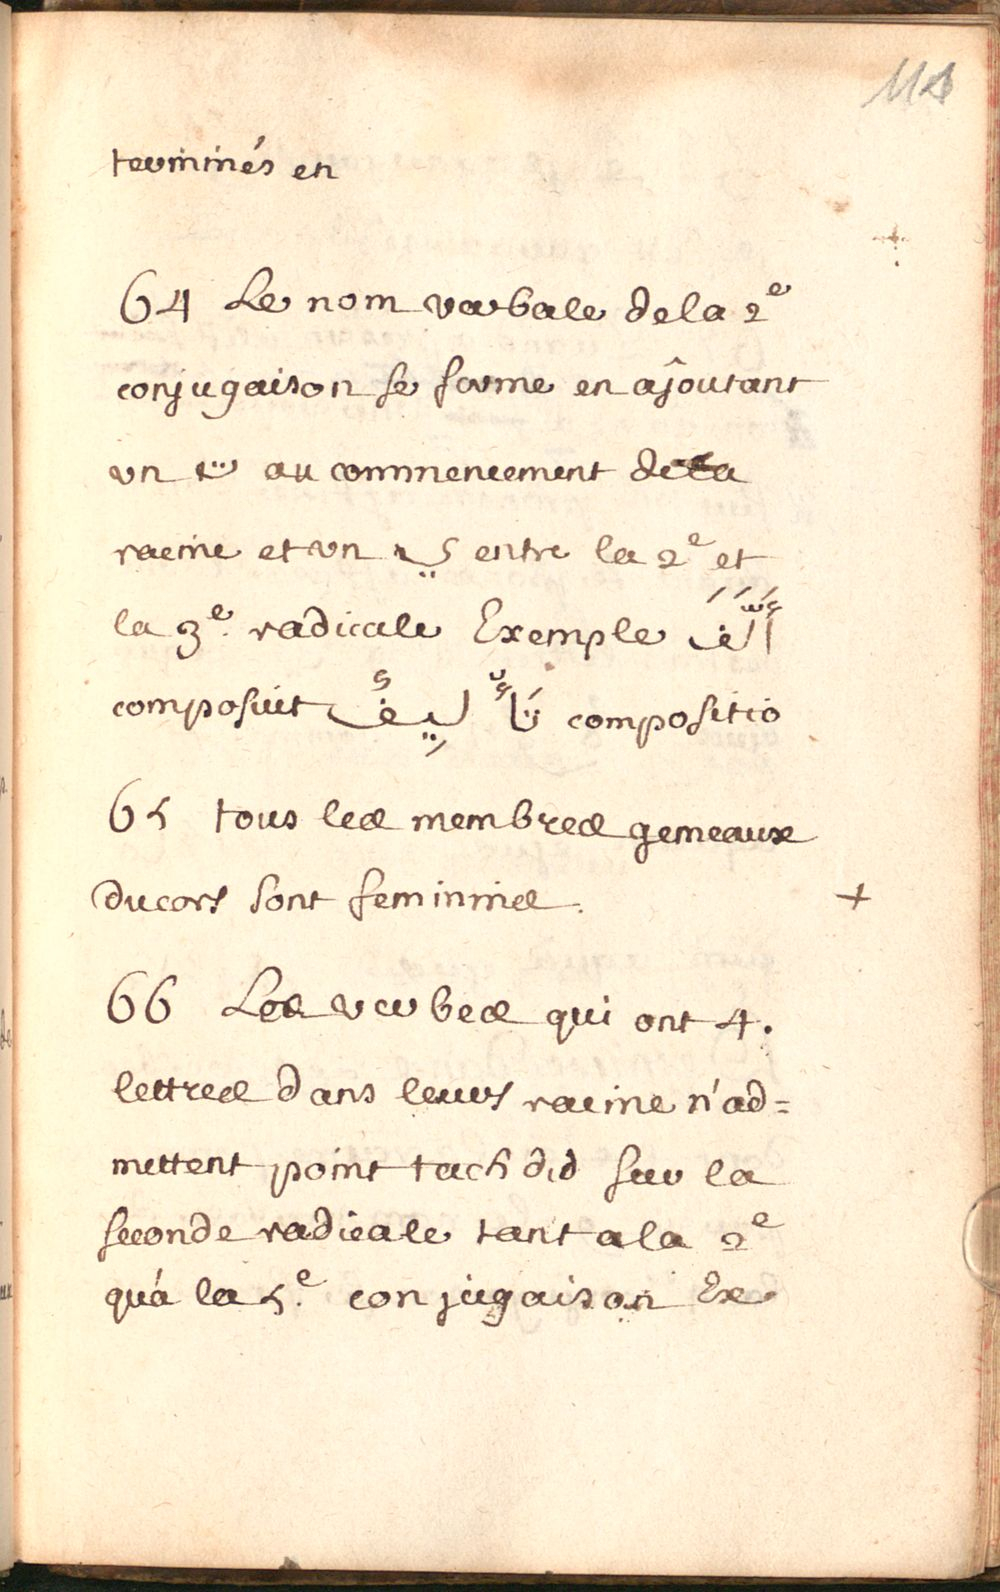 114
terminés en
64 Le nom verbale de la 2e
conjugaison se forme en ajoutant
un ت au commencement de la
racine et un ي entre la 2e et
la 3e. radicale Exemple أَلَّفَ
composuit تَأْلِيفٌ compositio
65 tous les membres gemeaux
du cors sont feminines.
+
66 Les verbes qui ont 4.
lettres dans leurs racine n'ad=
mettent point tachdid sur la
seconde radicale tant a la 2e
qu'á la 5e. conjugaison Ex.